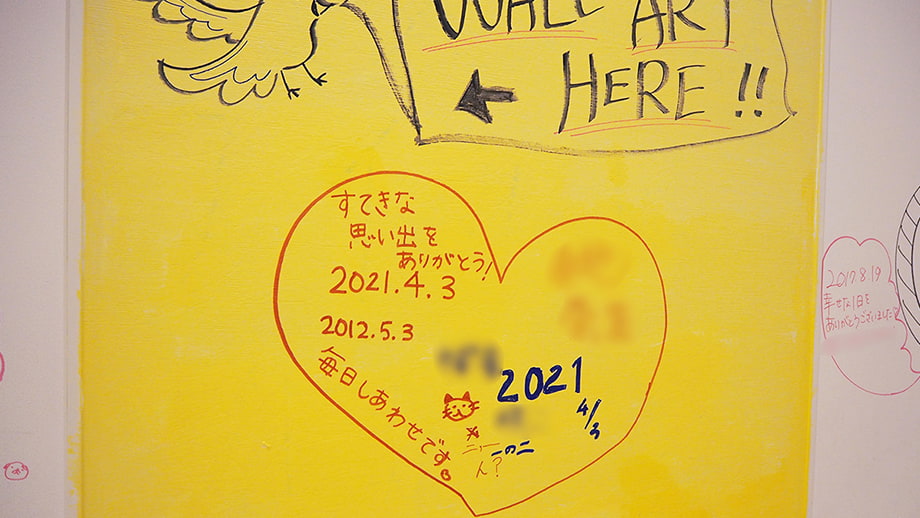 WALL ART
HERE !!
すてきな
思い出を
ありがとう!
2021.4.3
2012.5.3
毎日しあわせです。
2021
4/3
2017 8 19
幸せな1日を
ありがとうございました